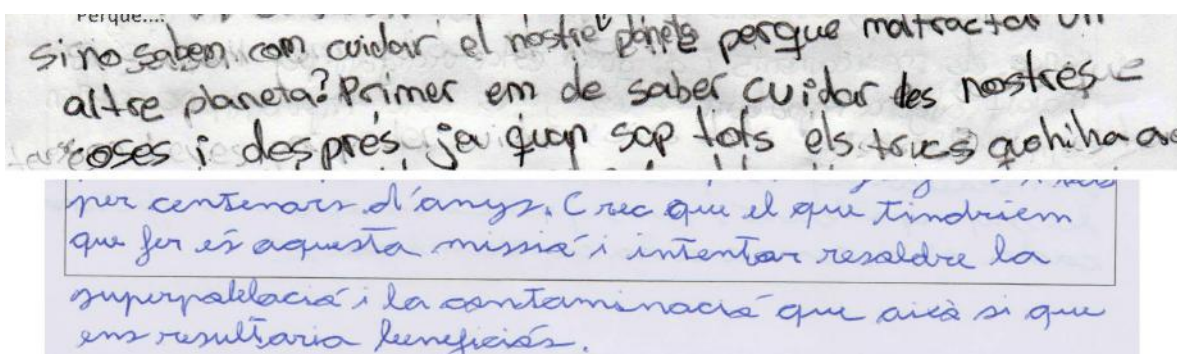 Perque....
si no saben com cuidar el nostre planeta perque maltractar un
altre planeta? Primer em de saber cuidar les nostres
coses i després ja quan sap tots els trucs
per centenars d'anys. Crec que el que tindriem
que fer és aquesta missió i intentar resoldre la
superpoblació i la contaminació que això si que
ens resultaria beneficiós.